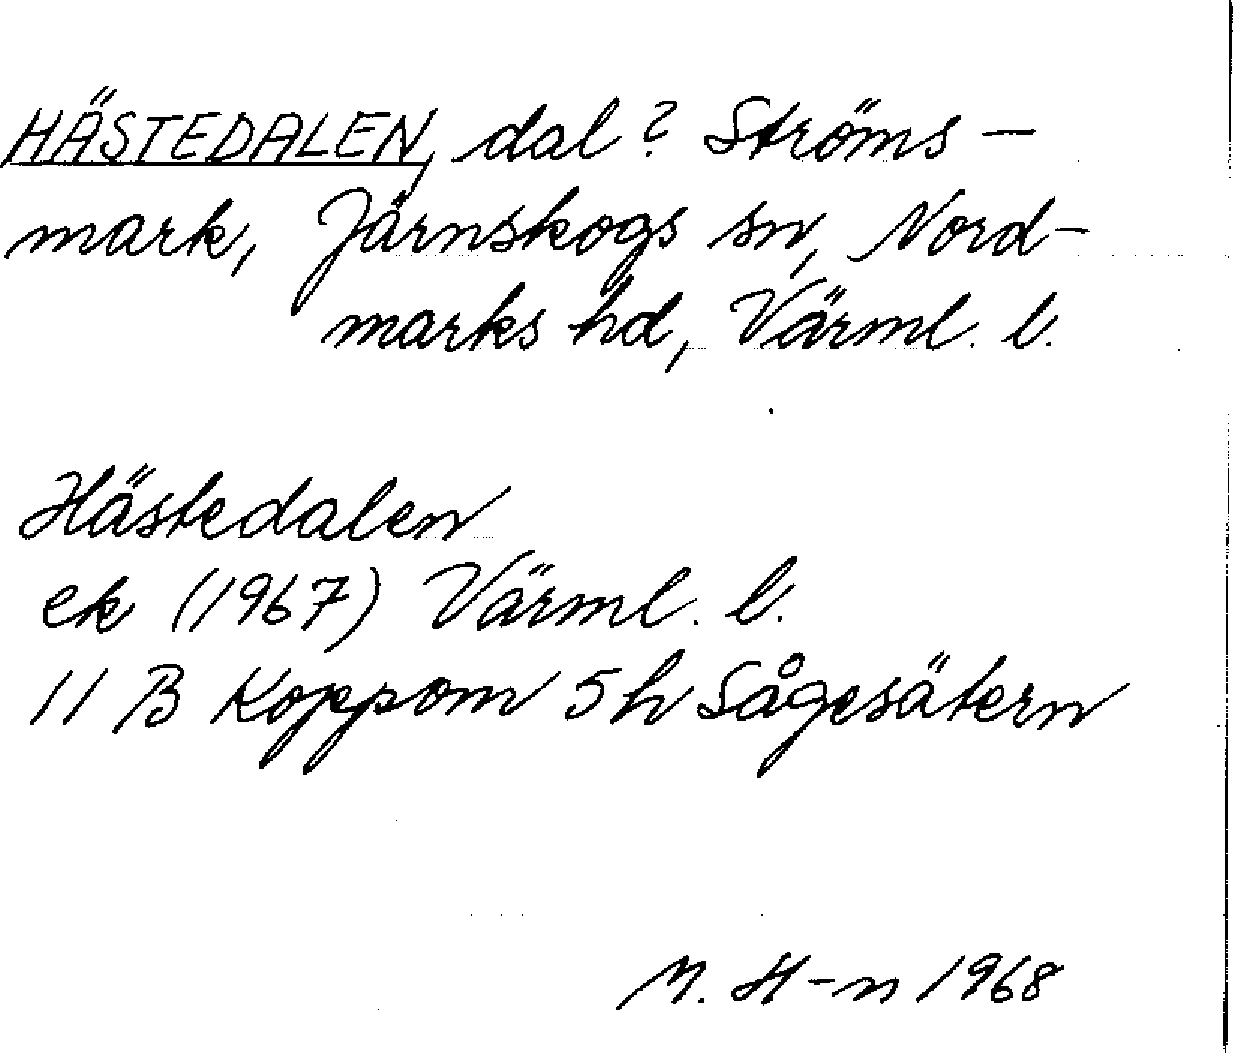 HÄSTEDALEN, dal? Ströms-
mark, Järnskogs sn, Nord-
marks hd, Värml. l.
Hästedalen
ek (1967) Värml. l.
11 B Koppom 5h Sågesätern
M. H-n 1968